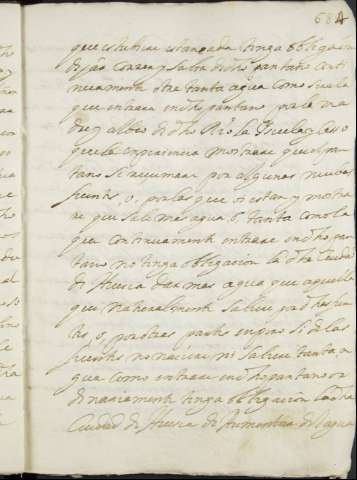 684
que estubiere estancada tenga obligacion
dejar correr y salir dicho pantano conti
nuamente otra tanta agua como fuere la
que entrare en dicho pantano por el ma
dre y albeo de dicho Rio la Ysuela y caso
que la experiencia mostrare que el pan
tano se reçumare por algunas nuebas
fuentes, o, por las que ya estan y mostra
re que sale mas agua o, tanta como la
que continuamente entrare en dicho pan
tano no tenga obligacion la dicha Ciudad
de Huesca dar mas agua que aquella
que naturalmente saliere por dichas fuen
tes, o, por otras partes empero si de las
fuentes no naciere ni saliere tanta a
gua como entrare en dicho pantano or
dinariamente tenga obligacion la dicha
Ciudad de Huesca de aumentar de l agua